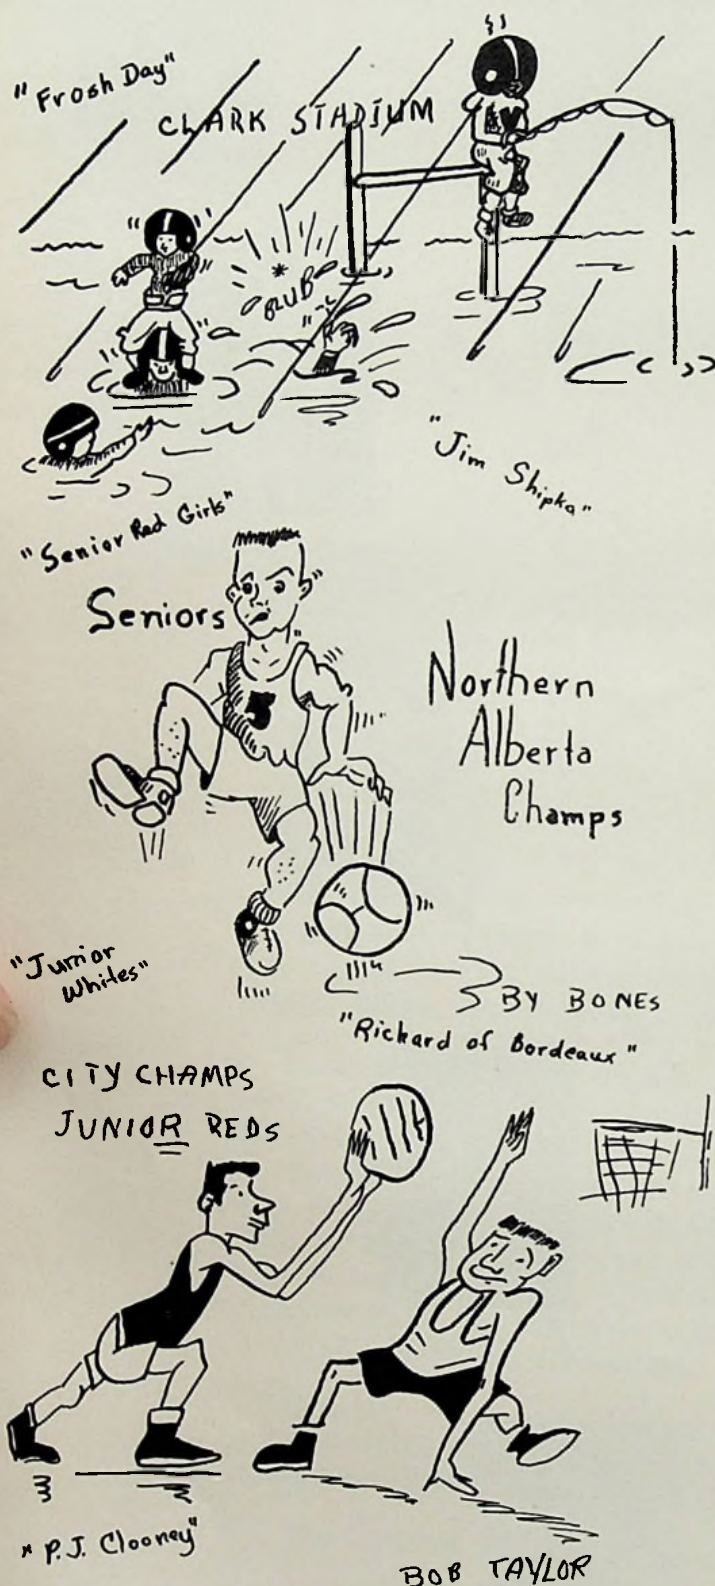 "Frosh Day"
CLARK STADIUM
BLUB
"Jim Shipka"
"Senior Red Girls"
Seniors
5
Northern
Alberta
Champs
"Junior
Whites"
BY BONES
"Richard of Bordeaux"
CITY CHAMPS
JUNIOR REDS
"P.J. Clooney"
BOB TAYLOR